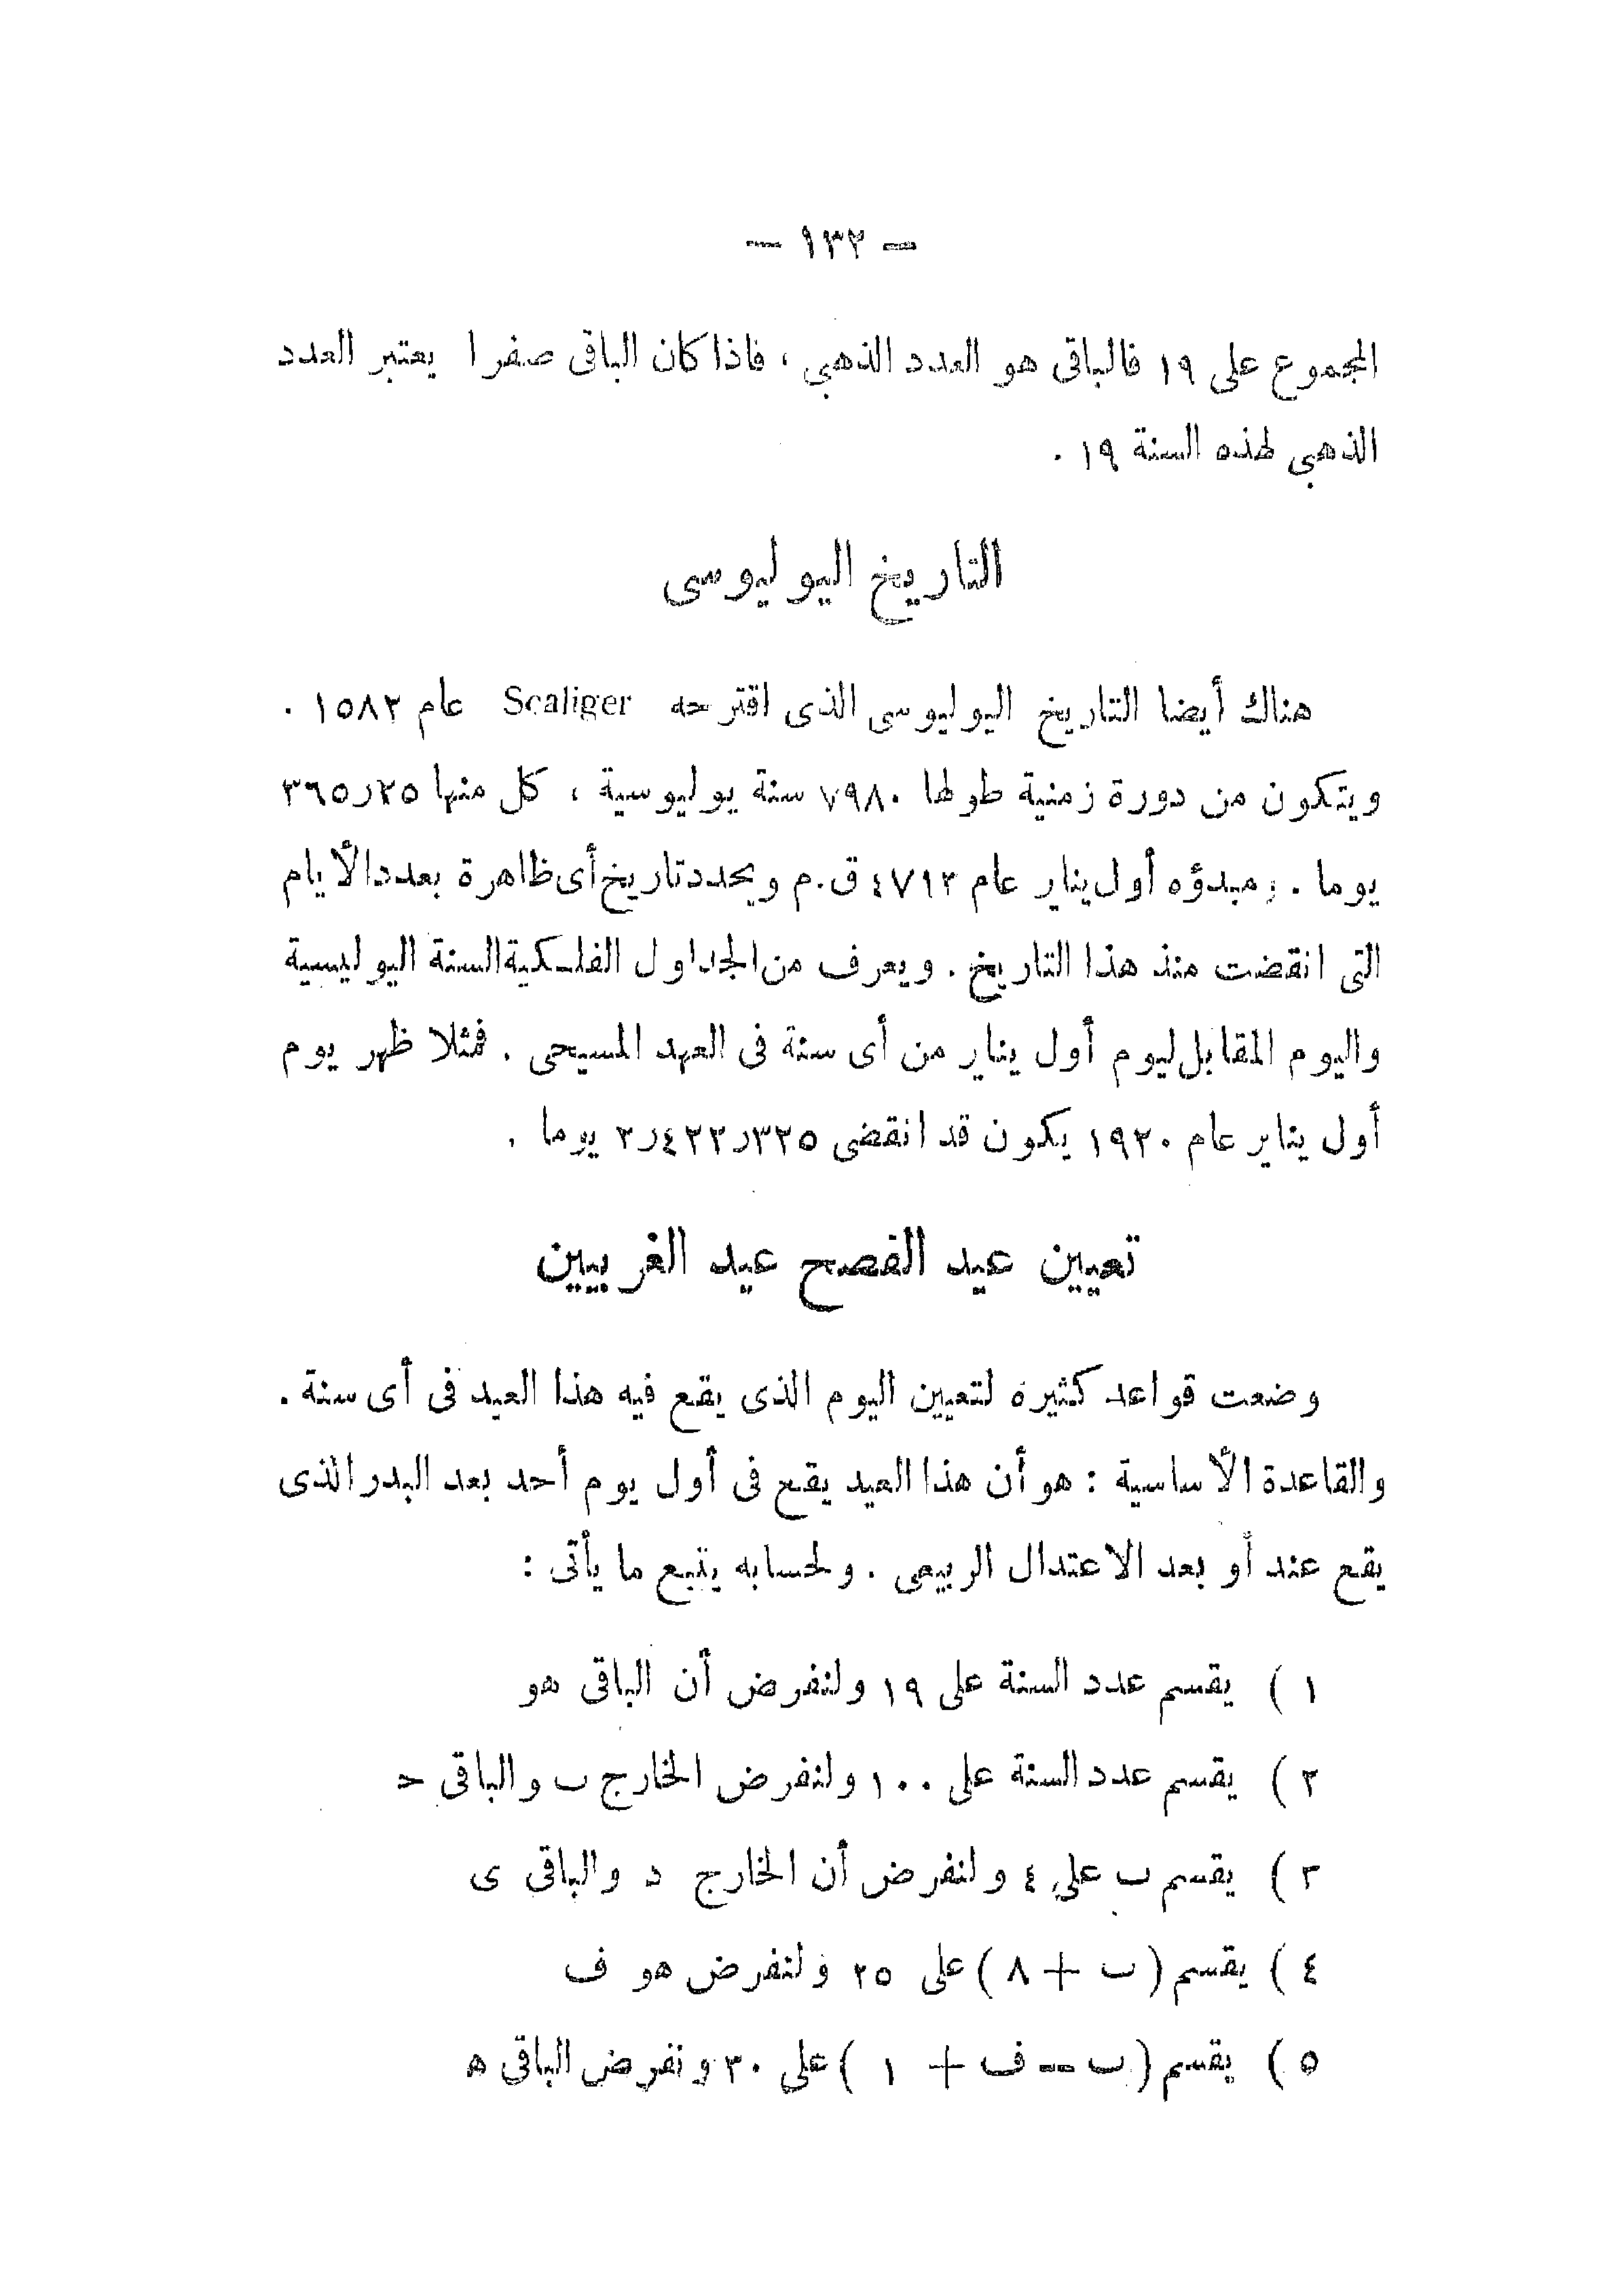 — ١٣٢ —
المجموع على ١٩ فالباقى هو العدد الذهبي ، فاذا كان الباقى صفرا يعتبر العدد
الذهبي لهذه السنة ١٩ .
التاريخ اليوليوسى
هناك أيضا التاريخ اليوليوسى الذى اقترحه Scaliger عام ١٥٨٢ .
ويتكون من دورة زمنية طولها ٧٩٨٠ سنة يوليوسية ، كل منها ٣٦٥ر٢٥
يوما . ومبدؤه أول يناير عام ٤٧١٣ ق.م ويحدد تاريخ أى ظاهرة بعدد الأيام
التى انقضت منذ هذا التاريخ . ويعرف من الجداول الفلكية السنة اليوليسية
واليوم المقابل ليوم أول يناير من أى سنة فى العهد المسيحى . فمثلا ظهر يوم
أول يناير عام ١٩٢٠ يكون قد انقضى ٢ر٤٢٢ر٣٢٥ يوما .
تعيين عيد الفصح عيد الغربيين
وضعت قواعد كثيرة لتعيين اليوم الذى يقع فيه هذا العيد فى أى سنة .
والقاعدة الأساسية : هو أن هذا العيد يقع فى أول يوم أحد بعد البدر الذى
يقع عند أو بعد الاعتدال الربيعى . ولحسابه يتبع ما يأتى :
١ ) يقسم عدد السنة على ١٩ ولنفرض أن الباقى هو
٢ ) يقسم عدد السنة على ١٠٠ ولنفرض الخارج ب والباقى ح
٣ ) يقسم ب على ٤ ولنفرض أن الخارج د والباقى ى
٤ ) يقسم ( ب + ٨ ) على ٢٥ ولنفرض هو ف
٥ ) يقسم ( ب — ف + ١ ) على ٣٠ ونفرض الباقى ه